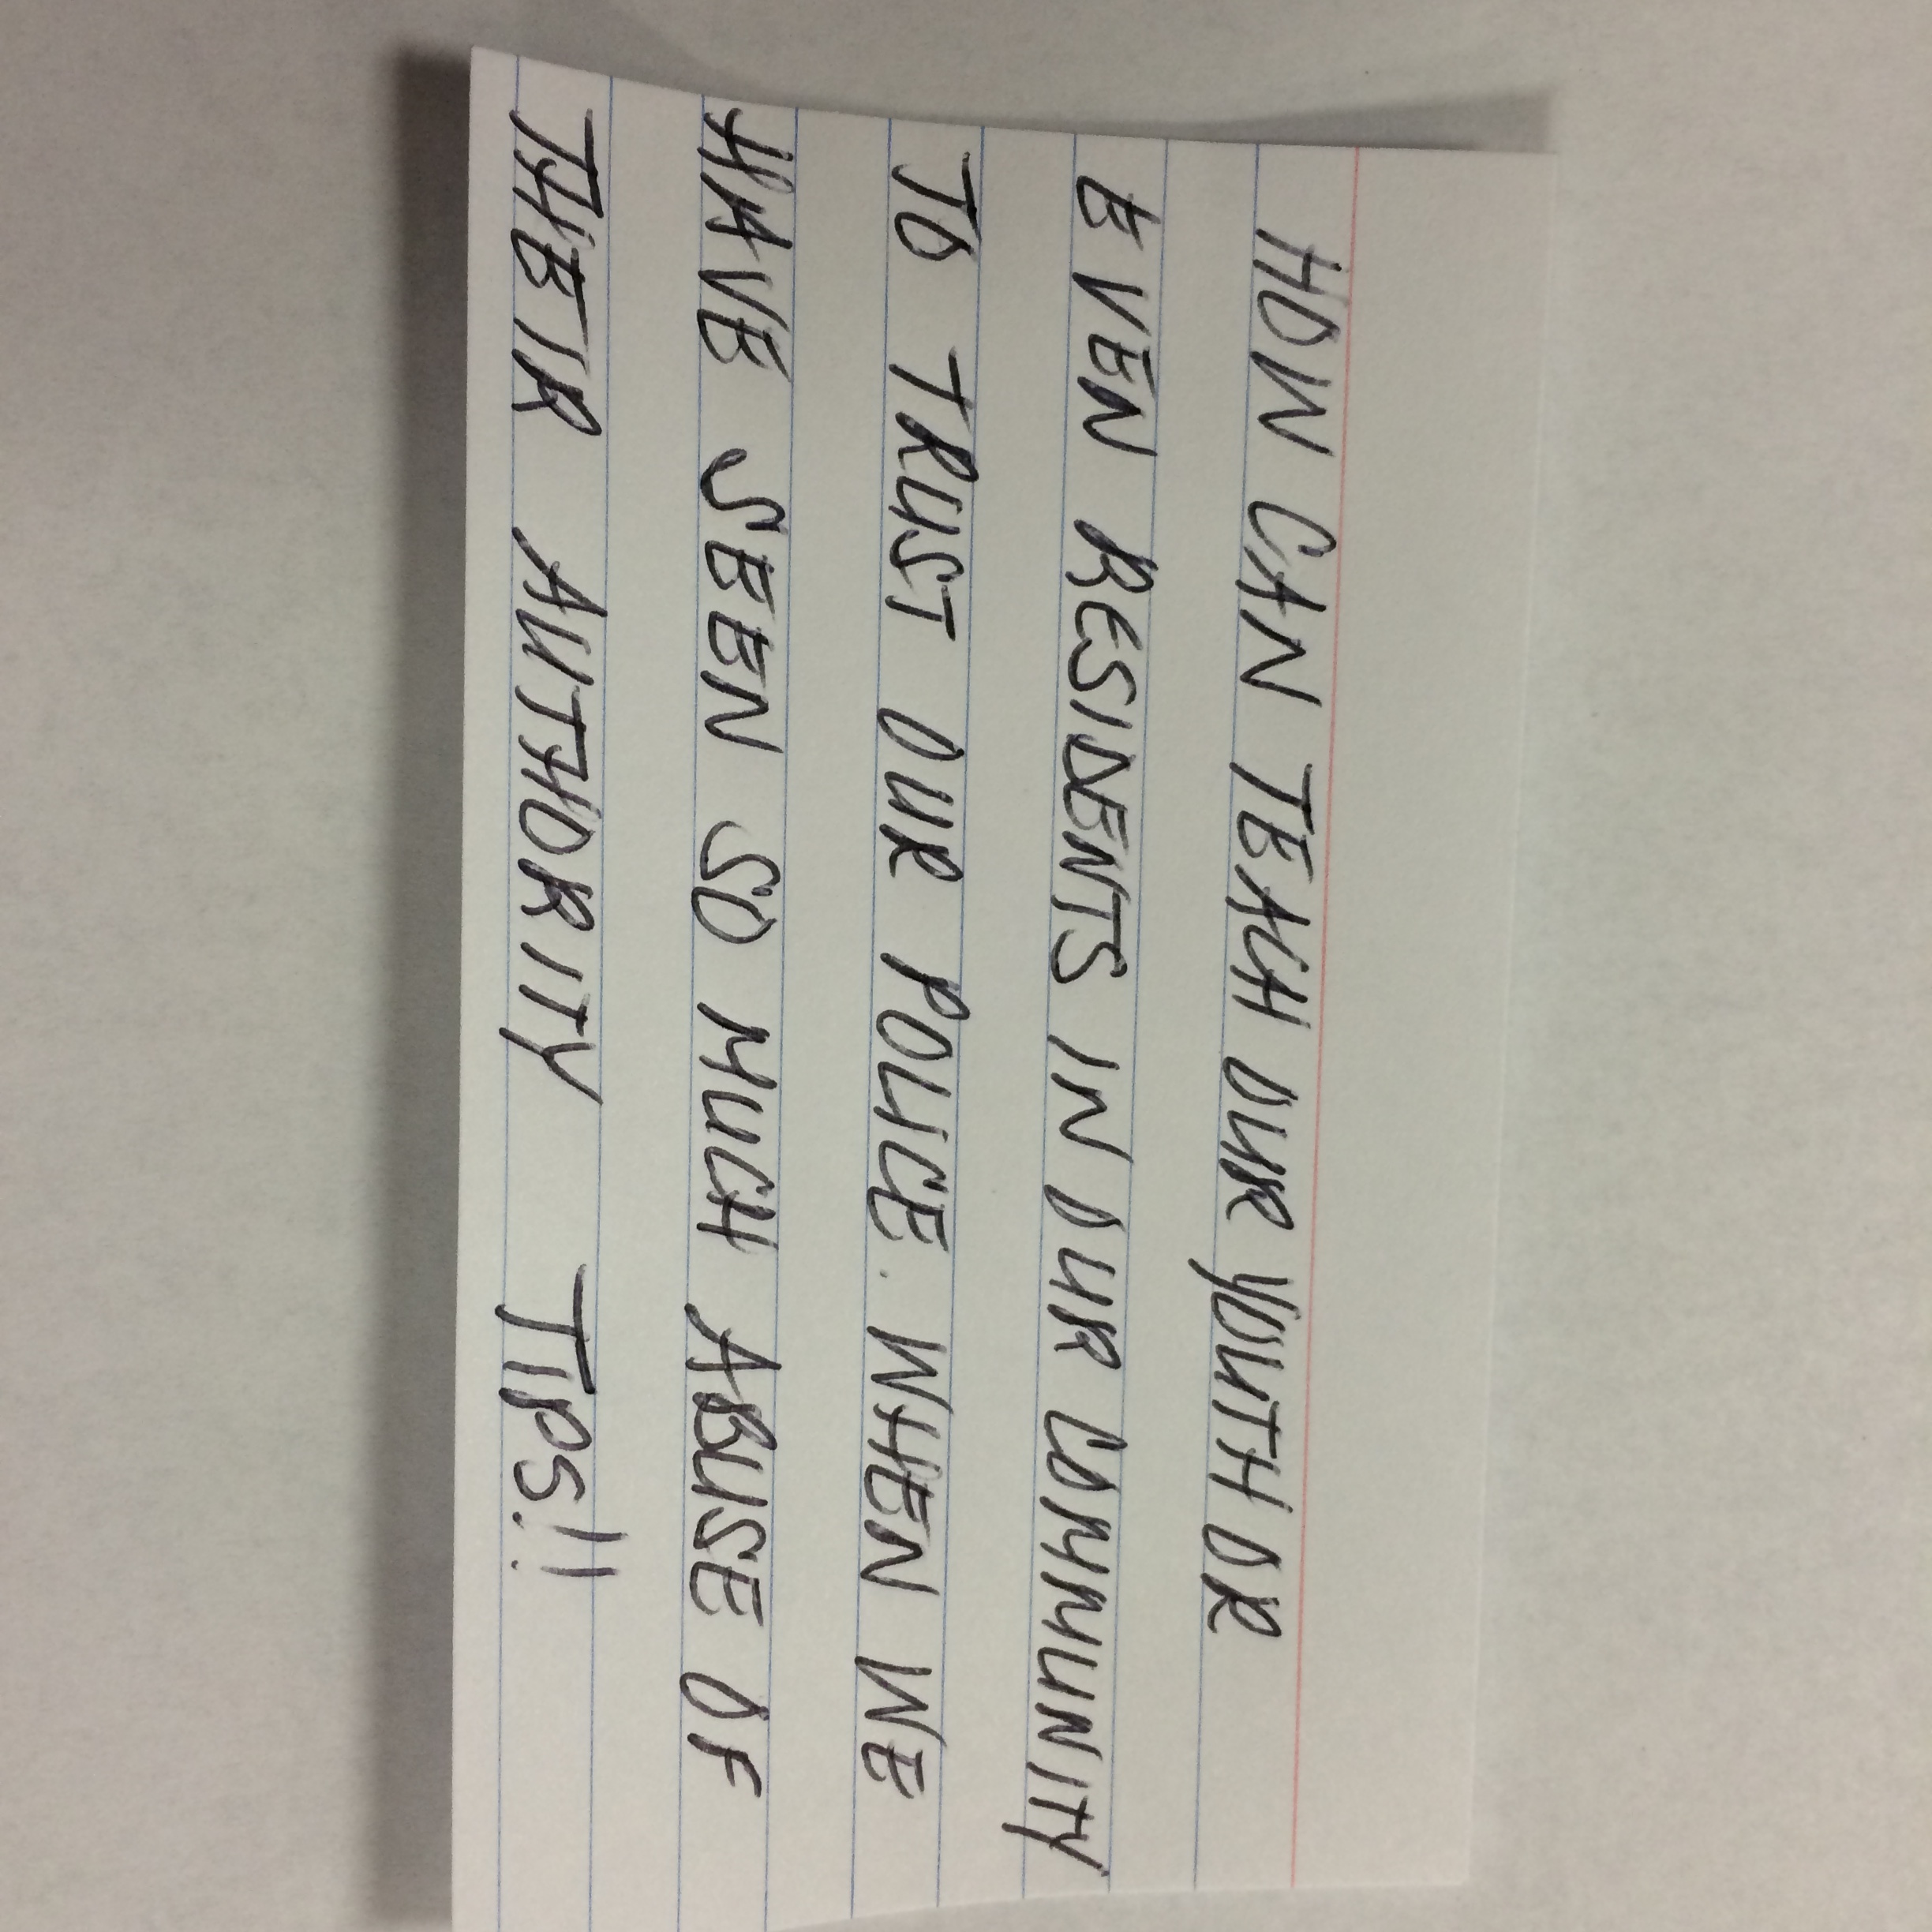 HOW CAN TEACH OUR YOUTH OR
EVEN RESIDENTS IN OUR COMMUNITY
TO TRUST OUR POLICE. WHEN WE
HAVE SEEN SO MUCH ABUSE OF
THEIR AUTHORITY TIPS!!